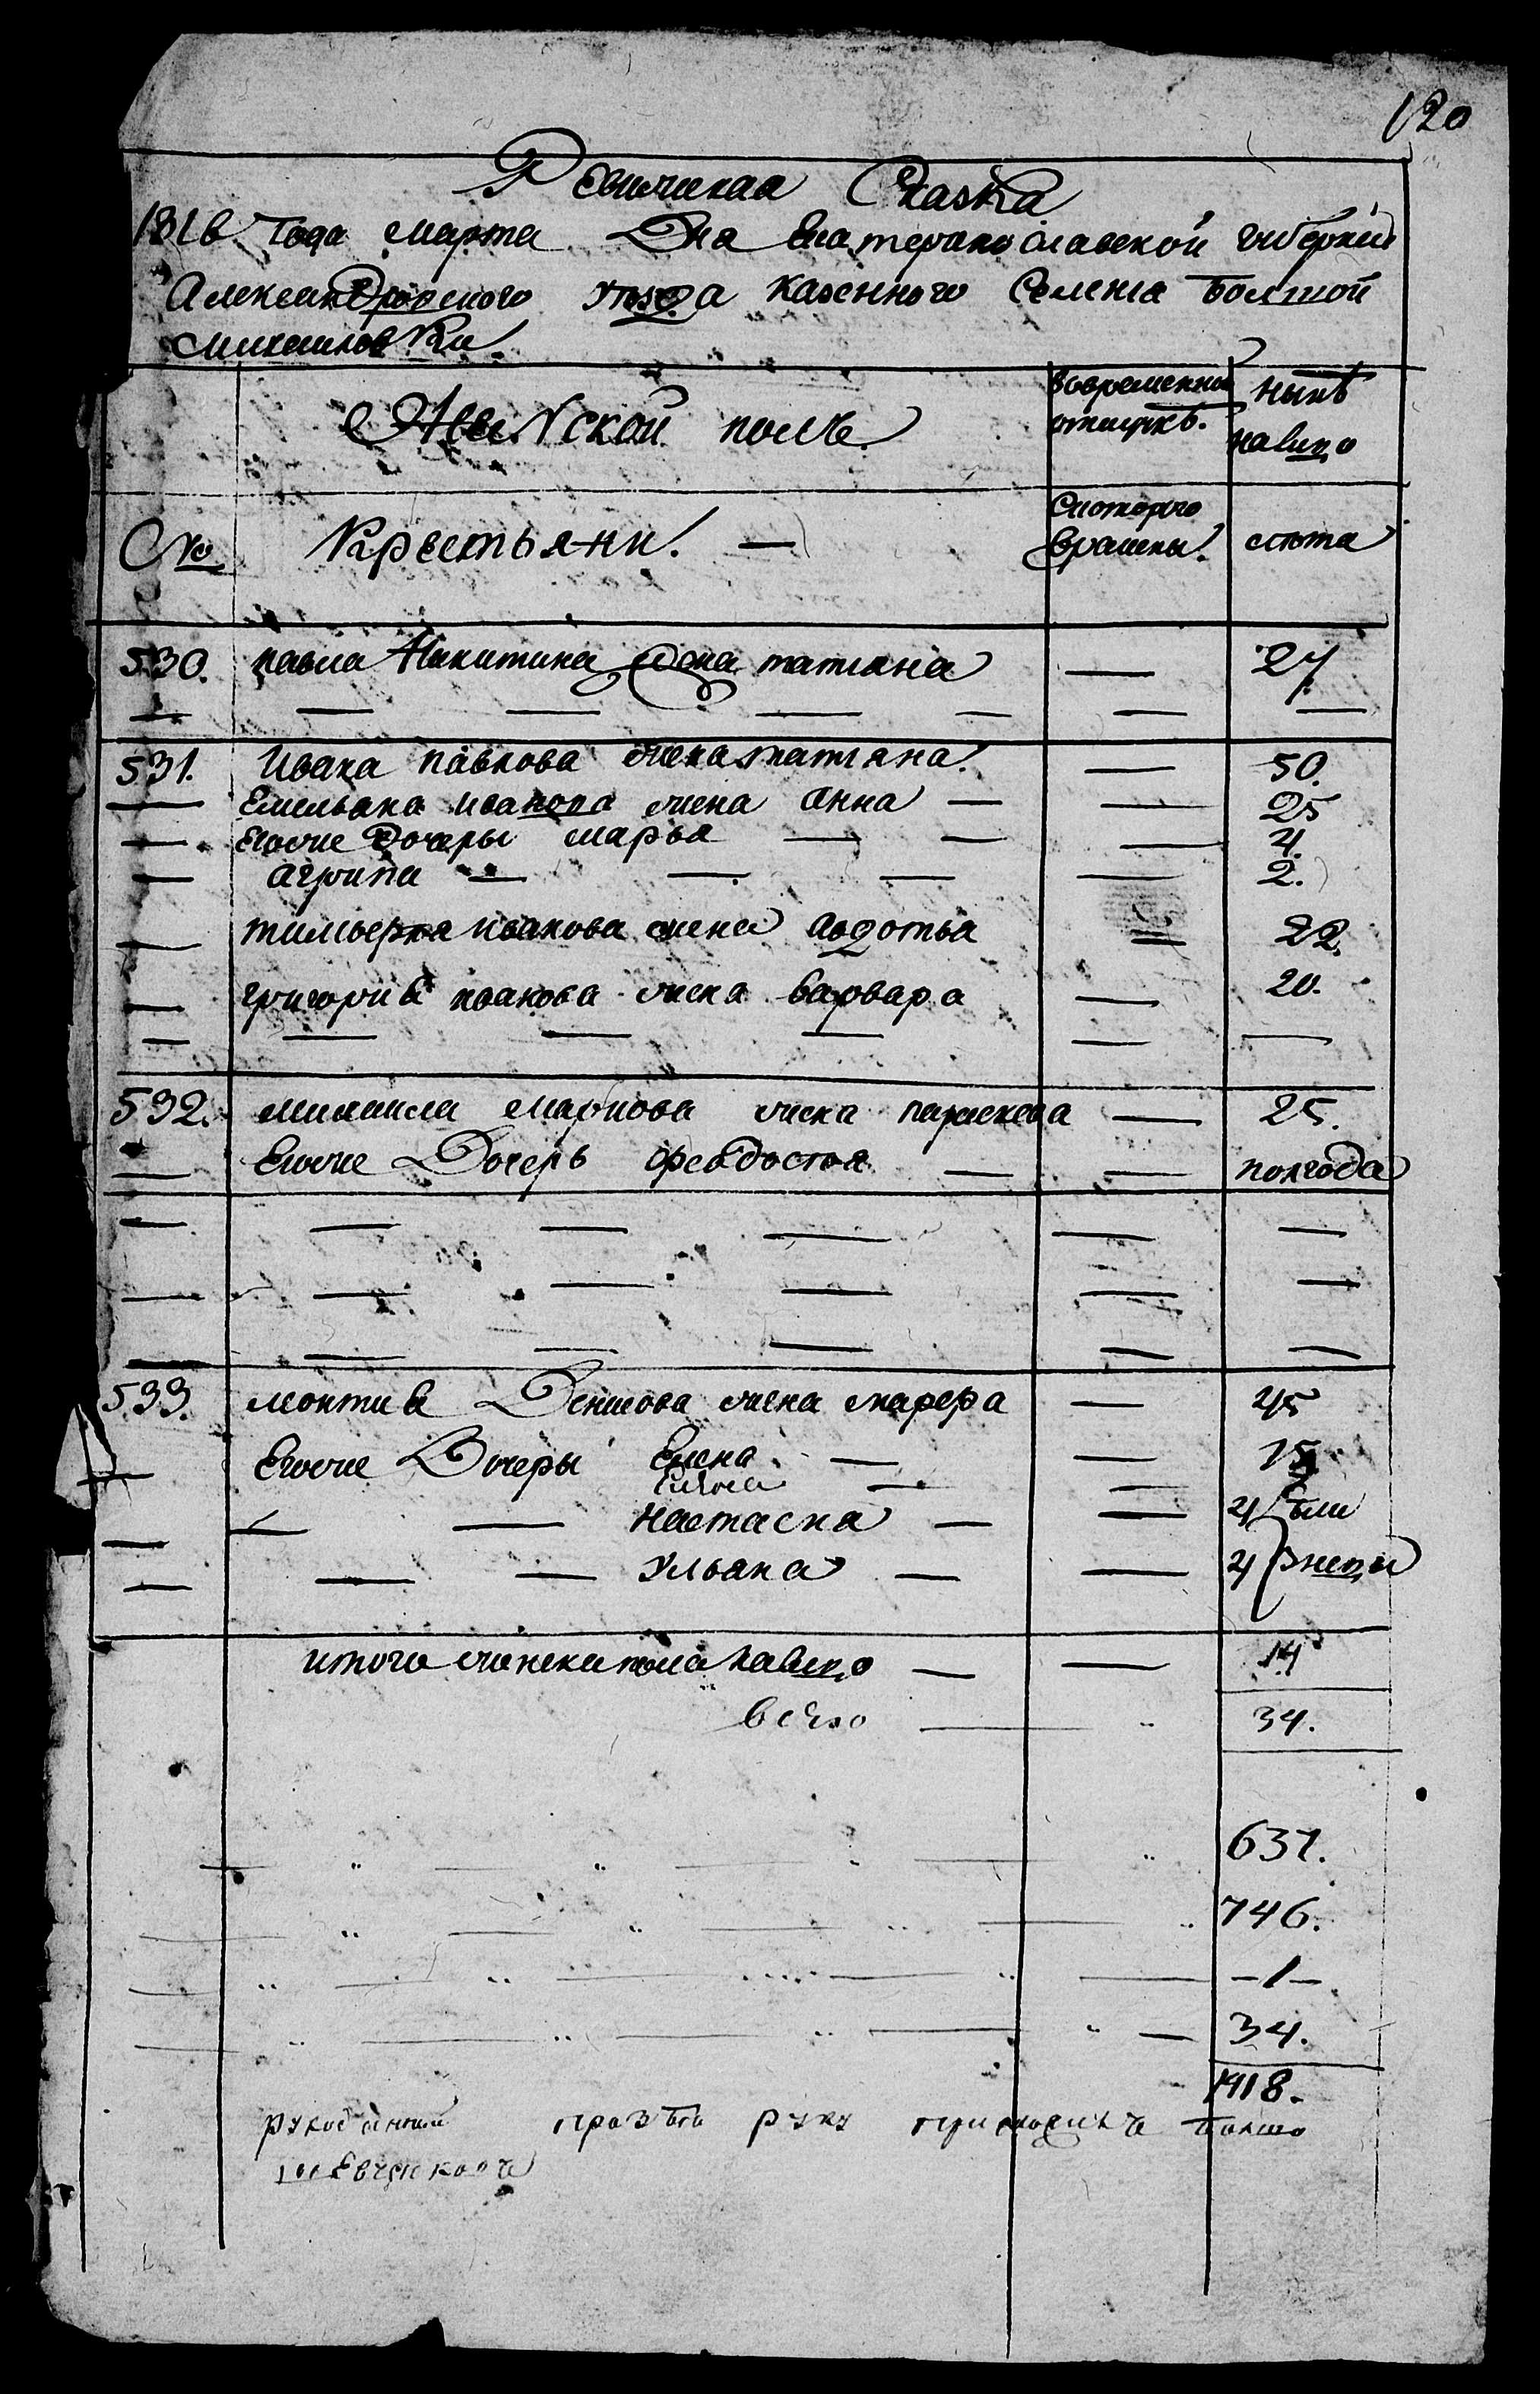 120
Ревижская Сказка
1816 года марта Дня Екатеринославской губернии
Александровского уѣзда казенного Селения Болшой
Михаиловки.
Женской полъ
вовременной отлучкѣ.
Нынѣ налицо
№ Крестьяни. —
Скоторго времены.
лѣта
530. павла Никитина жена татияна — 27
531. Ивана павлова жена татияна — 50.
— Емельяна иванова жена Анна — — 25
— Егоже Дочеры марья — — — 4.
— агрипа — — — — 2.
— тимофея иванова жена авдотья — 22.
— григория иванова жена варвара — 20.
532. михаила маркова жена параскева — 25.
— Егоже Дочерь феодостя — — полгода
533. леонтия Денисова жена марфа — 45
— Егоже Дочеры Елена — — 15
— — — настасия — — 4
— — — Ульяна — — 4
итого женска пола налицо — — 14
всего — 34.
637.
746.
— 1 —
34.
1418.
руку